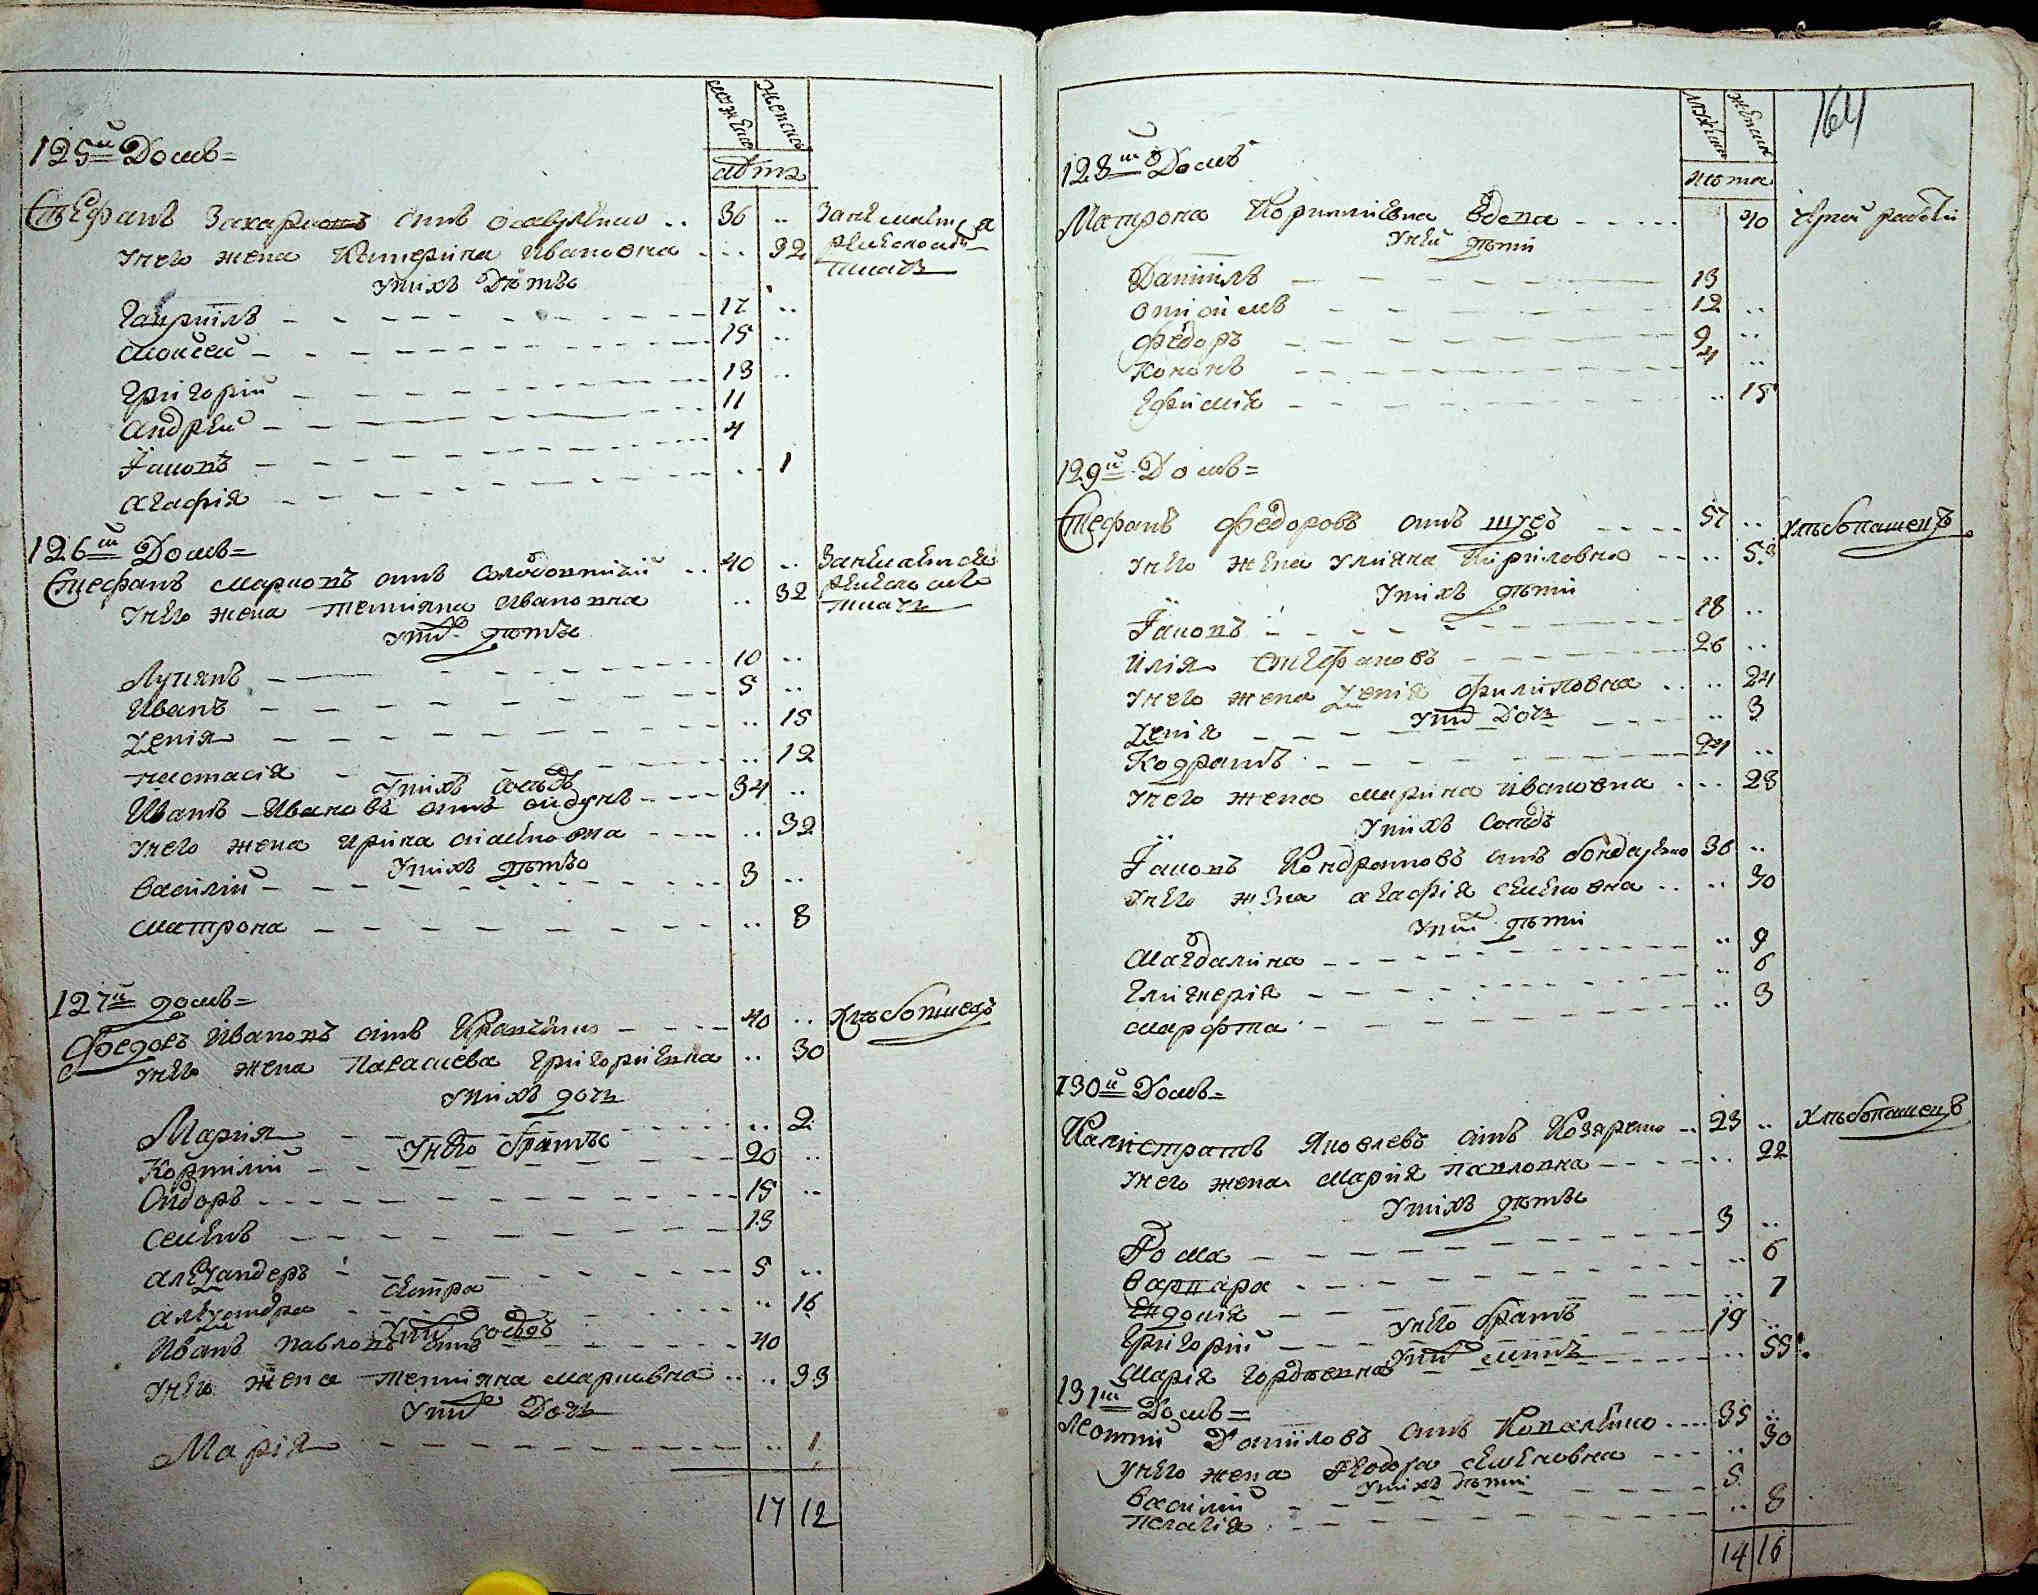 мужеска женска
лѣта
125й Домъ=
Стефанъ Захариовъ синъ 36 ..
Унего жена Катерина Ивановна .. 32
Унихъ Дѣтѣ
Гавриилъ 17 ..
Моисей 15 ..
Григорий 13 ..
Андрей 11
Яковъ 4
Агафія .. 1
126й Домъ=
Стефанъ Марковъ синъ .. 40 ..
Унего жена Тетіяна Ивановна .. 32
Уних дѣтѣ
Лукянъ 10 ..
Иванъ 5 ..
Ксенія .. 15
Настасія .. 12
Унихъ сосѣдъ
Иванъ Ивановъ синъ 34 ..
Унего жена Ирина .. 32
Унихъ дѣтѣ
Василий 3 ..
Матрона .. 8
127й домъ=
Федоръ Ивановъ синъ 40 .. Хлѣбопашецъ
Унего жена Параскева Григориевна .. 30
Унихъ дочь
Мария .. 2
Унего братѣ
Корнилий 20 ..
Сидоръ 15 ..
Семенъ 13
Александеръ 5 ..
сестра
Александра .. 16
Уних сосѣдъ
Иванъ Павловъ синъ 40
Унего жена Тетіяна Марковна .. 33
Уних Дочь
Марія .. 1
17 12
мужеска женска
164
лѣта
128й Домъ
Матрона вдова 40
Унеи дѣти
Даниилъ 13
12 ..
Федоръ 9 ..
Кононъ 4 ..
Ефимія .. 15
129й Домъ=
Стефанъ Федоровъ синъ 57 .. Хлѣбопашецъ
Унего жена Уляна Кириловна .. 53
Унихъ дѣти
Яковъ 18 ..
Илія Стефановъ 26 ..
Унего жена Ксенія Филиповна .. 24
Уних Дочь
Ксенія .. 3
Кодратъ 24 ..
Унего жена Марина Ивановна .. 23
Унихъ Сосѣдъ
Яковъ Кондратовъ синъ Бондаренко 36 ..
Унего жена Агафія Семеновна .. 30
Уних дѣти
Магдалина .. 9
Гликерія .. 6
Марфта .. 3
130й Домъ=
Калистратъ Яковлевъ синъ Козаренко .. 23 .. Хлѣбопашецъ
Унего жена Марія Павловна .. 22
Унихъ дѣтѣ
Фома 3 ..
Варвара .. 6
Евдокія .. 1
Унего братъ
Григорий 19 ..
Уних мать
Марія Гордѣевна .. 55
131й Домъ=
Леонтий Данииловъ синъ Коваленко 35 ..
Унего жена Феодора Семеновна .. 30
Унихъ дѣти
Василий 5
Пелагія .. 8
14 16